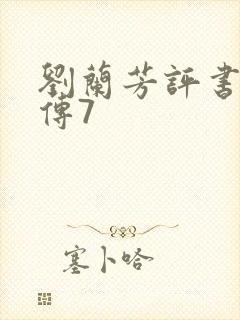 劉蘭芳評書
傳7
塞卜哈